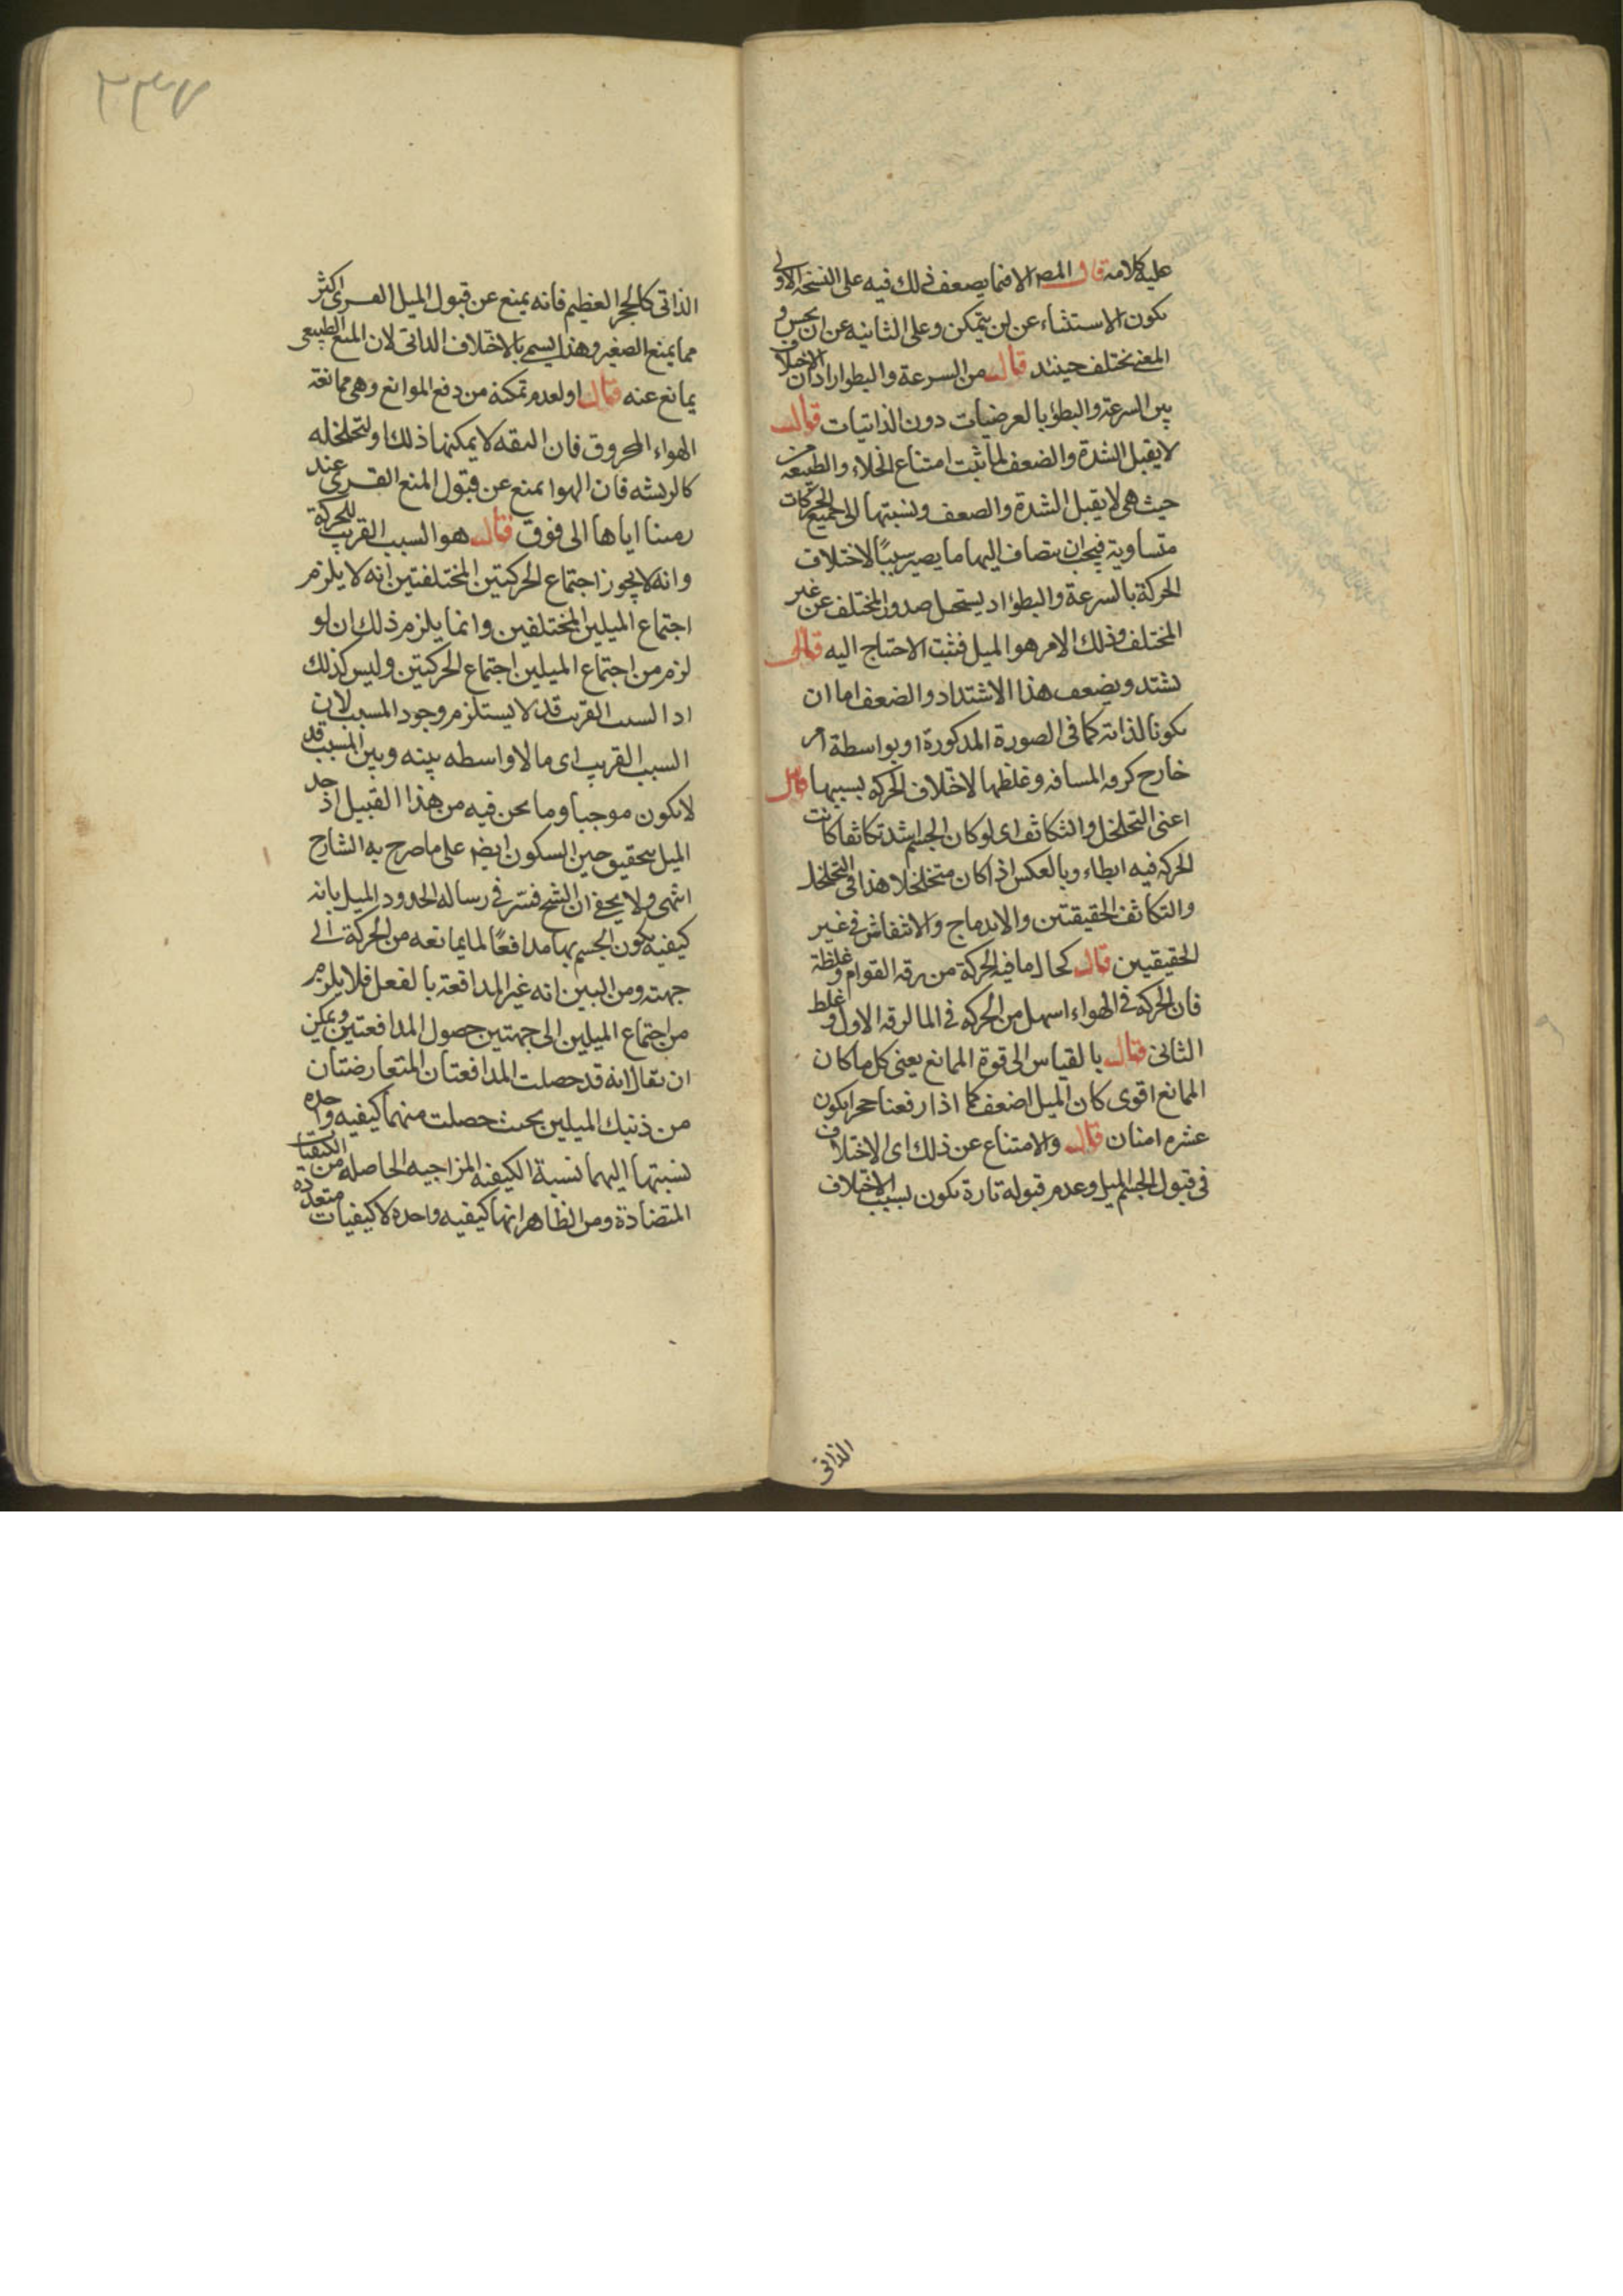 عليه كلامه قال المصـ الا فيما يضعف ذلك فيه على النسخة الاولى
يكون الاستثناء عن لن يتمكن وعلى الثانيه عن ان يحس و
المعنى يختلف حينئذ قال من السرعة والبطؤ اراد ان الاختلاف
بين السرعة والبطؤ بالعرضيات دون الذاتيات قال
لا يقبل الشدة والضعف لما ثبت امتناع الخلاء والطبيعه من
حيث هى لا يقبل الشدة والضعف ونسبتها الى جميع الحركات
متساوية فيجب ان يضاف اليها ما يصير سببًا لاختلاف
الحركة بالسرعة والبطؤ اذ يستحيل صدور المختلف عن غير
المختلف وذلك الامر هو الميل فثبت الاحتياج اليه قال
يشتد ويضعف هذا الاشتداد والضعف اما ان
يكونا لذاته كما فى الصورة المذكورة او بواسطة امر
خارج كرقه المسافه وغلظها لاختلاف الحركه بسببها قال
اعنى التخلخل والتكاثف اى لو كان الجسم اشد تكاثفا كانت
الحركه فيه ابطاء وبالعكس اذا كان متخلخلا هذا فى التخلخل
والتكاثف الحقيقتين والاندماج والانتفاش فى غير
الحقيقيين قال كحال ما فيه الحركة من رقه القوام وغلظة
فان الحركه فى الهواء اسهل من الحركه فى الما لرقه الاول وغلظ
الثانى قال بالقياس الى قوة الممانع يعنى كل ما كان
الممانع اقوى كان الميل اضعف كما اذا رفعنا حجرا يكون
عشره امنان قال والامتناع عن ذلك اى الاختلاف
فى قبول الجسم الميل وعدم قبوله تارة يكون بسبب الاختلاف
الذاتى
٢٣٧
الذاتى كالحجر العظيم فانه يمنع عن قبول الميل القسرى اكثر
مما يمنع الصغير وهذا يسمى بالاختلاف الذاتى لان المنع الطبيعى
يمانع عنه قال او لعدم تمكنه من دفع الموانع وهى ممانعة
الهواء المخروق فان البقه لا يمكنها ذلك او لتخلخله
كالريشه فان الهوا يمنع عن قبول المنع القسرى عند
رمينا اياها الى فوق قال هو السبب القريب للحركة
وانه لا يجوز اجتماع الحركتين المختلفتين انه لا يلزم
اجتماع الميلين المختلفين وانما يلزم ذلك ان لو
لزم من اجتماع الميلين اجتماع الحركتين وليس كذلك
اذ السبب القريب قد لا يستلزم وجود المسبب لان
السبب القريب اى ما لا واسطه بينه وبين المسبب قد
لا يكون موجبا وما نحن فيه من هذا القبيل اذ
الميل يتحقق حين السكون ايضـ على ما صرح به الشارح
انتهى ولا يخفى ان الشيخ فسّر فى رساله الحدود الميل بانه
كيفيه يكون الجسم بها مدافعًا لما يمانعه من الحركة الى
جهته ومن البين انه غير المدافعة بالفعل فلا يلزم
من اجتماع الميلين الى جهتين حصول المدافعتين ويمكن
ان يقال انه قد حصلت المدافعتان المتعارضتان
من ذينك الميلين بحيث حصلت منهما كيفيه واحده
نسبتها اليهما نسبة الكيفية المزاجيه الحاصله من الكيفيات
المتضادة ومن الظاهر انها كيفيه واحده لا كيفيات متعددة